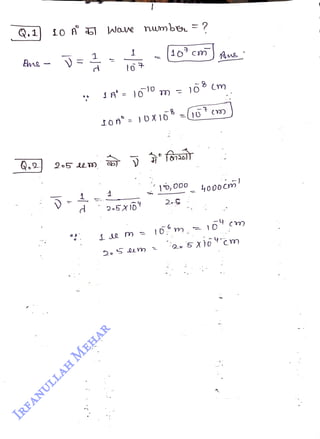 1
Q.1 10 A° का Wave number = ?
Ans - ν̄ = 1/λ = 1/10⁻⁷ = 10⁷ cm⁻¹ Ans.
∵ 1 A° = 10⁻¹⁰ m = 10⁻⁸ cm
10 A° = 10 X 10⁻⁸ = 10⁻⁷ cm
Q.2 2.5 µm को ν̄ में लिखो
ν̄ = 1/λ = 1/2.5X10⁻⁴ = 10,000/2.5 = 4000cm⁻¹
∵ 1 µm = 10⁻⁶ m = 10⁻⁴ cm
2.5 µm = 2.5 X 10⁻⁴ cm
IRFANULLAH MEHAR